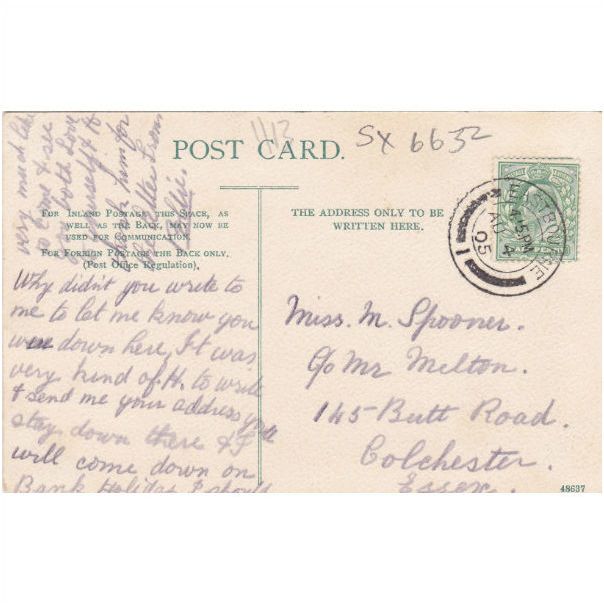 11/13
SX 6652
POST CARD.
FOR INLAND POSTAGE THIS SPACE, AS
WELL AS THE BACK, MAY NOW BE
USED FOR COMMUNICATION.
FOR FOREIGN POSTAGE THE BACK ONLY.
(Post Office Regulation).
THE ADDRESS ONLY TO BE
WRITTEN HERE.
EASTBOURNE
4.15 PM
AU 4
05
Why didn't you write to
me to let me know you
down here, It was
very kind of H. to write
& send me your address
stay down there & I
will come down on
Bank Holiday I should
very much like
to come & see
both love
yourself &
from
Miss. M. Spooner.
c/o Mr Melton.
145 Butt Road.
Colchester.
Essex.
48637